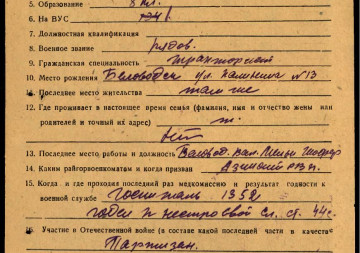 5. Образование 8 кл.
6. На ВУС
7. Должностная квалификация
8. Военное звание рядов.
9. Гражданская специальность тракторист
10. Место рождения Беловодск ул. Калинина №13
11. Последнее место жительства там же
12. Где проживает в настоящее время семья (фамилия, имя и отчество жены или
родителей и точный их адрес)
нет
13. Последнее место работы и должность
14. Каким райгорвоенкоматом и когда призван
15. Когда и где проходил последний раз медкомиссию и результат годности к
военной службе Госпиталь 1358
годен к нестроевой
16. Участие в Отечественной войне (в составе какой последней части и в качестве
Партизан.